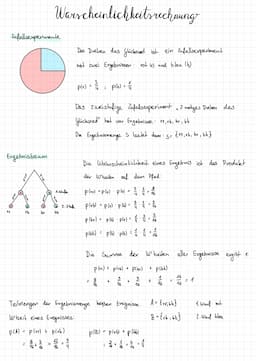 Warscheinlichkeitsrechnung
Zufallsexperimente
Das Drehen des Glücksrad ist ein Zufallsexperiment
mit zwei Ergebnissen: rot (r) und blau (b)
p(r) = 3/4 ; p(b) = 1/4
Das zweistufige Zufallsexperiment „2 maliges Drehen des
Glücksrad" hat vier Ergebnisse: rr, rb, br, bb
Die Ergebnismenge S lautet dann: S = {rr, rb, br, bb}
Ergebnisbaum
Die Wahrscheinlichkeit eines Ergebnis ist das Produkt
der W'keiten auf dem Pfad
p(rr) = p(r) · p(r) = 3/4 · 3/4 = 9/16
p(rb) = p(r) · p(b) = 3/4 · 1/4 = 3/16
p(br) = p(b) · p(r) = 1/4 · 3/4 = 3/16
p(bb) = p(b) · p(b) = 1/4 · 1/4 = 1/16
Die Summe der W'keiten aller Ergebnisse ergibt 1
p(rr) + p(rb) + p(br) + p(bb)
= 9/16 + 3/16 + 3/16 + 1/16 = 16/16 = 1
Teilmengen der Ergebnismenge heißen Ereignisse.
W'keit eines Ereignisses: